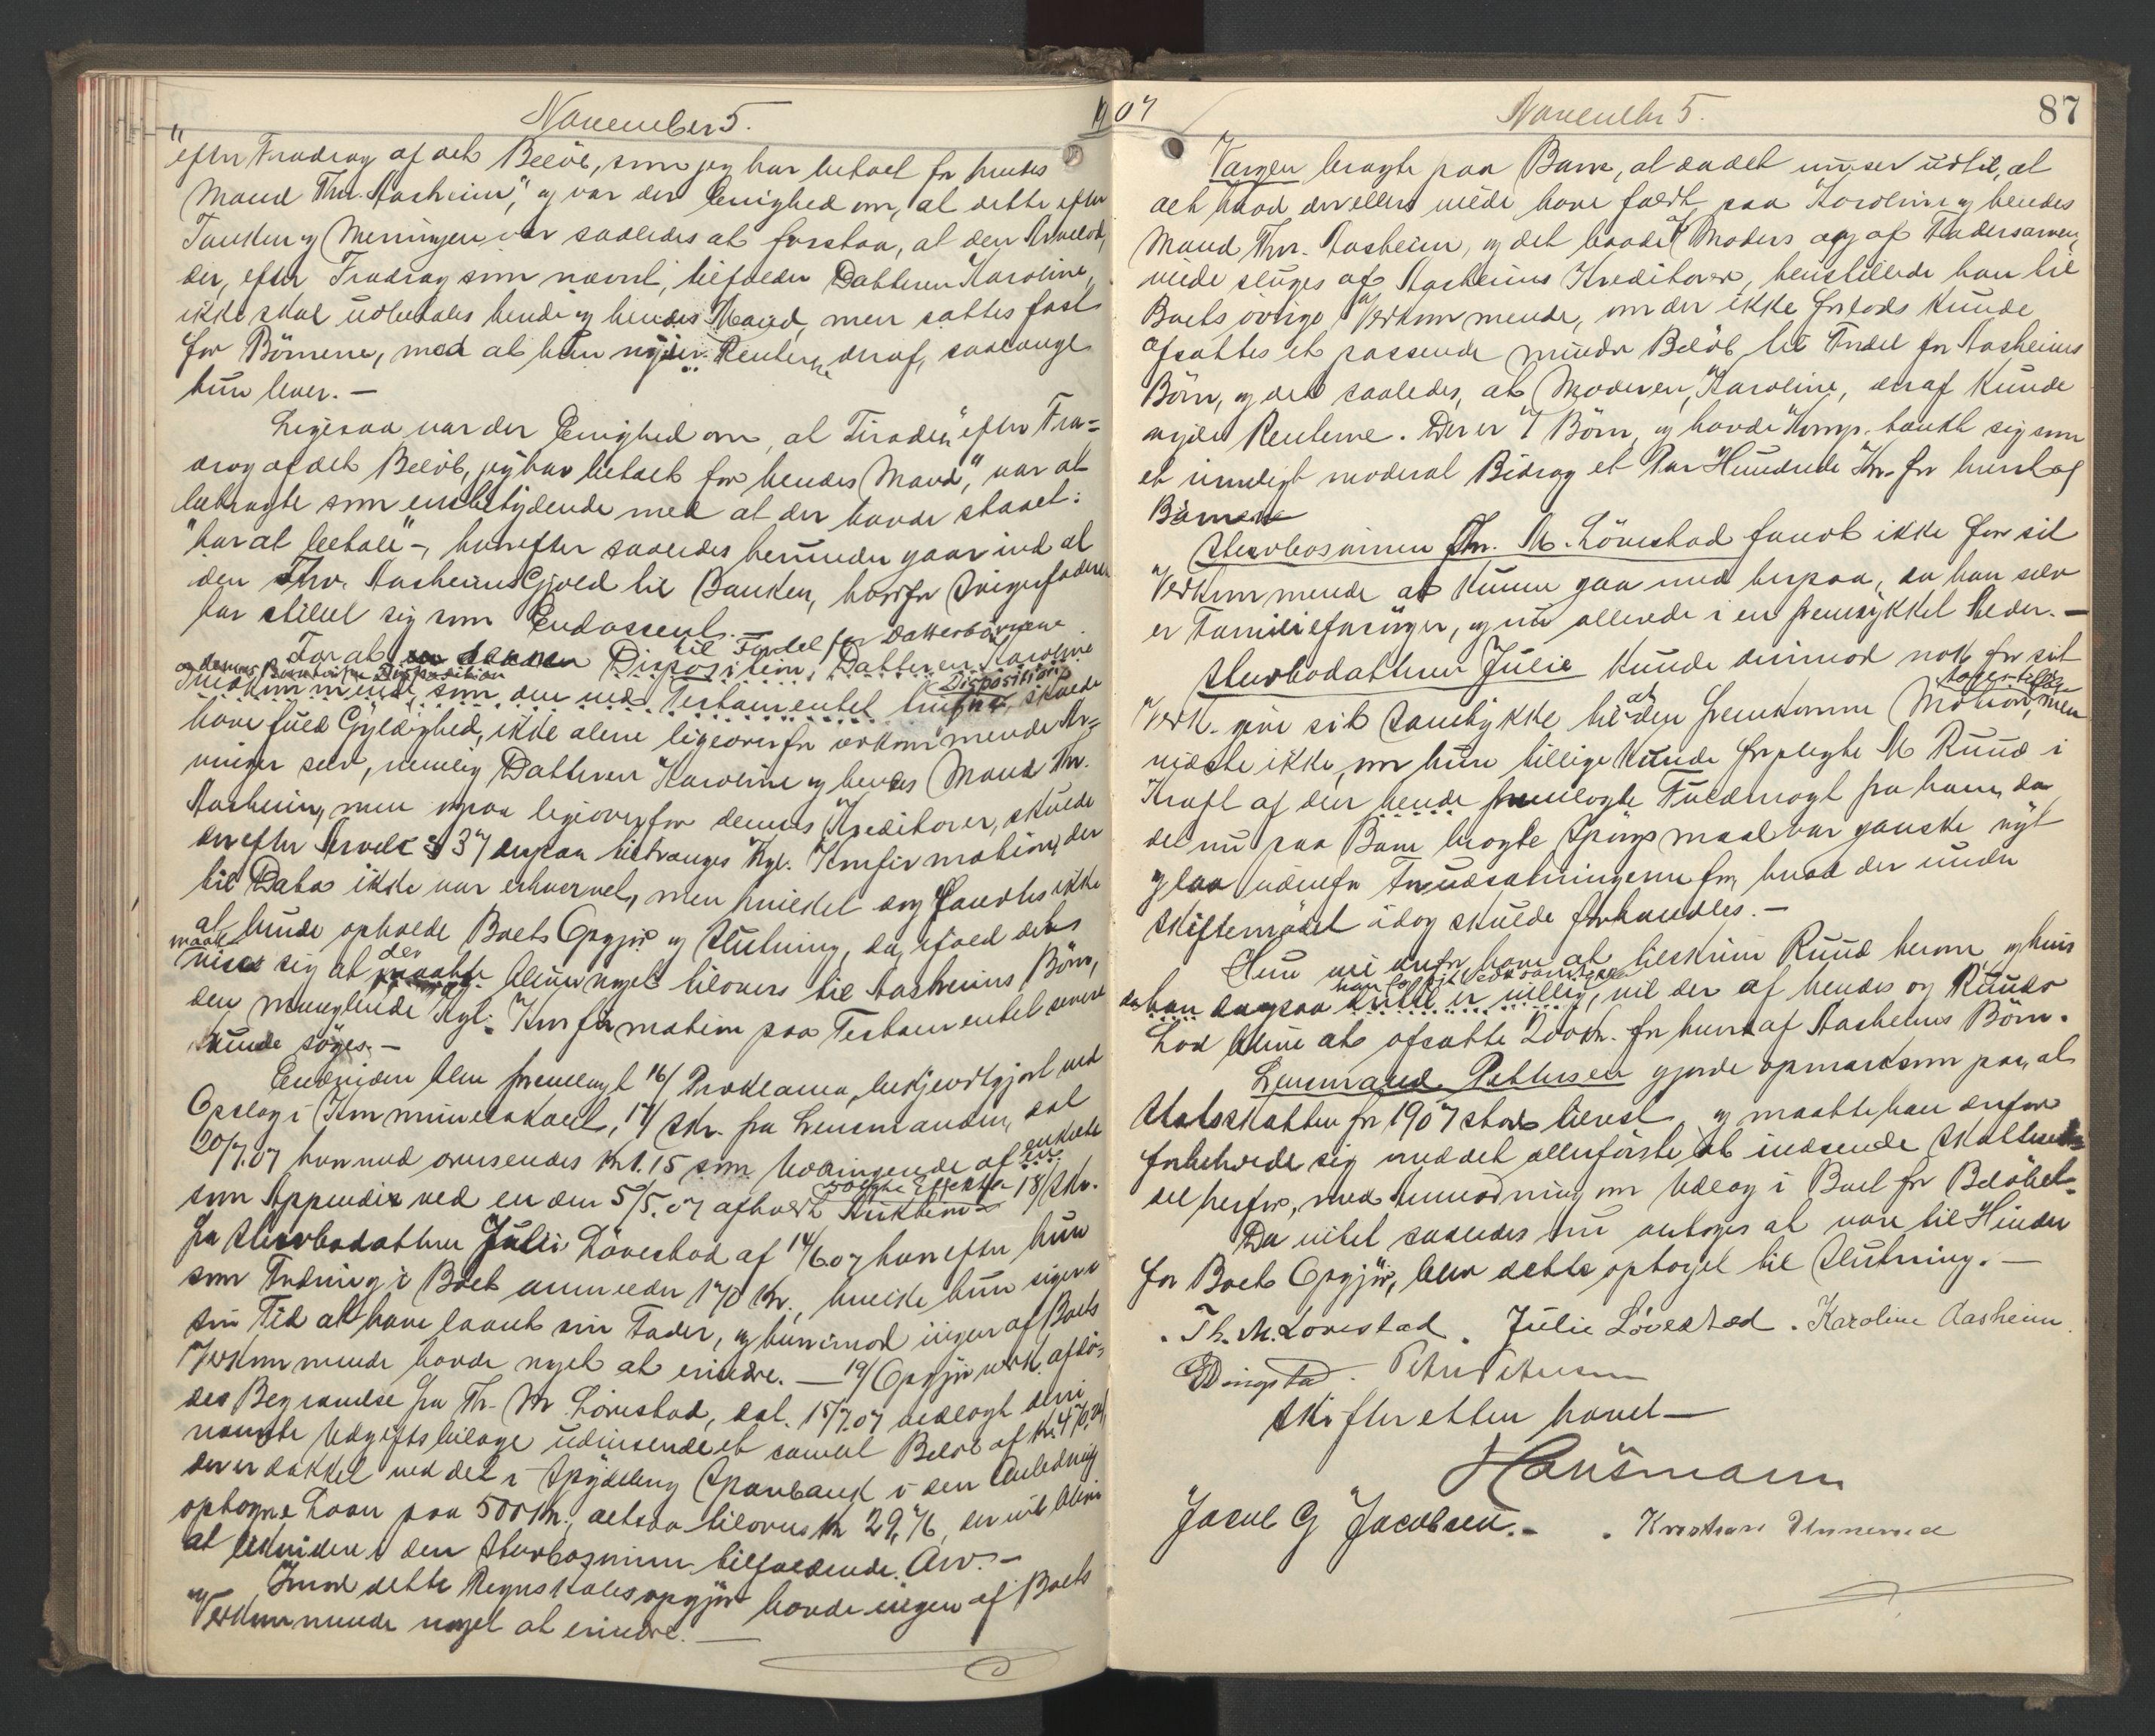 November 5.
"efter Fradrag af det Beløb, som jeg har betalt for hendes
Mand Thv. Aasheim", og var der Enighed om, at dette efter
Tanken og Meningen var saaledes at forstaa, at den Arvelod,
der, efter Fradrag som nævnt, tilfalder Datteren Karoline,
ikke skal udbetales hende og hendes Mand, men sættes fast
for Börnene, mod at hun nyder Renterne deraf, saalænge
hun lever. —
Ligesaa var der Enighed om, at Tiraden "efter Fra=
drag af det Beløb, jeg har betalt for hendes Mand", var at
betragte som enstbetydende med at der havde staaet:
"har at betale" -, hvorefter saaledes herunder gaar ind al
den Thv. Aasheims Gjæld til Banken, hvorfor Svigerfaderen
har stillet sig som Endossent. —
til Fordel for Datterbörnene
For at Disposition, Datteren Karoline
og dennes Disposition Disposition
som den ved Testamentet skulde
have fuld Gyldighed, ikke alene ligeoverfor vedkommende Ar=
vinger selv, nemlig Datteren Karoline og hendes Mand Thv.
Aasheim, men ogsaa ligeoverfor dennes Kreditorer, skulde
derefter Arvel. § 37 dersaa tiltrænges Kgl. Konfirmation, der
til Dato ikke var erhvervet, men hvilket dog fandtes ikke
at burde opholde Boets Opgjør og Slutning, da, ifald det
maatte
vise sig at der blev noget tilovers til Aasheims Börn,
den manglende Kgl. Konfirmation paa Testamentet senere
kunde søges. —
Endvidere blev fremlagt 16/ Proklama, bekjendtgjort ved
Opslag i Kommunelokalet, 17/ Skr. fra Lensmanden, dat
20/7.07 hvorved oversendes Kr 1.15 som indkomne af enkelte
som Appendix ved en den 5/5.07 afholdt Auktion solgte Effekter 18/ Skr.
fra Sterbodatteren Julie Lövestad af 14/6 07 hvorefter hun
som Fordring i Boet anmelder 170 Kr., hvilke hun siger i
sin Tid at have laant sin Fader, og hvorimod ingen af Boets
Vedkommende havde noget at erindre. — 19/ Opgjör vedk. afdö=
des Begravelse fra Th. M Lövestad, dat. 15/7.07 vedlagt deri
nævnte Udgiftsbilage udvisende et samlet Beløb af Kr. 470,24,
der er dækket ved det i Spydeberg Sparebank i den Anledning
optagne Laan paa 500 Kr., altsaa tilovers Kr 29,76, der vil blive
at likvidere i den Sterbosönnen tilfaldende Arv. —
Imod dette Regnskabsopgjør havde ingen af Boets
Vedkommende noget at erindre. —
1907
November 5.
87
Værgen bragte paa Bane, at da det nu ser ud til, at
alt hvad der ellers vilde have faldt paa Karoline og hendes
Mand Thv. Aasheim, og det baade af Moders og af Fadersarven,
vilde sluges af Aasheims Kreditorer, henstillede han til
Boets øvrige Vedkommende, om der ikke forlods kunde
afsættes et passende mindre Beløb til Fordel for Aasheims
Börn, og det saaledes, at Moderen, Karoline, deraf kunde
nyde Renterne. Der er 7 Börn, og havde Komp. tænkt sig som
et rimeligt moderat Bidrag et Par Hundrede Kr. for hvert af
Börnene
Sterbosönnen Thv. M. Lövestad fandt ikke for sit
Vedkommende at kunne gaa med herpaa, da han selv
er Familieforsörger, og nu allerede i en fremrykket Alder. —
Sterbodatteren Julie kunde derimod nok for sit
Vedk. give sit Samtykke til at den fremkomne Motion tages tilfølge, men
vidste ikke, om hun tillige kunde forpligte M Ruud i
Kraft af den hende fremlagte Fuldmagt fra ham, da
det nu paa Bane bragte Spörgsmaal var ganske nyt
og laa udenfor Forudsætningerne for, hvad der under
Skiftemødet idag skulde forhandles. —
Hun vil derfor have at tilskrive Ruud herom, og hvis
han for sit Vedkommende
da han dogsaa er villig, vil der af hendes og Ruuds
Lod blive at afsætte 200 Kr. for hvert af Aasheims Börn.
Lensmand Pettersen gjorde opmærksom paa, at
Statsskatten for 1907 stod tilrest, og maatte han derfor
forbeholde sig med det allerförste at indsende Skattesed=
del herfor, med Anmodning om Udlæg i Boet for Beløbet.
Da intet saaledes nu antoges at være til Hinder
for Boets Opgjör, blev dette optaget til Slutning. —
Th. M. Lövestad. Julie Lövestad. Karoline Aasheim
Petter Pettersen
Skifteretten hævet —
Hansmann
Jacob G Jacobsen. - Kristian